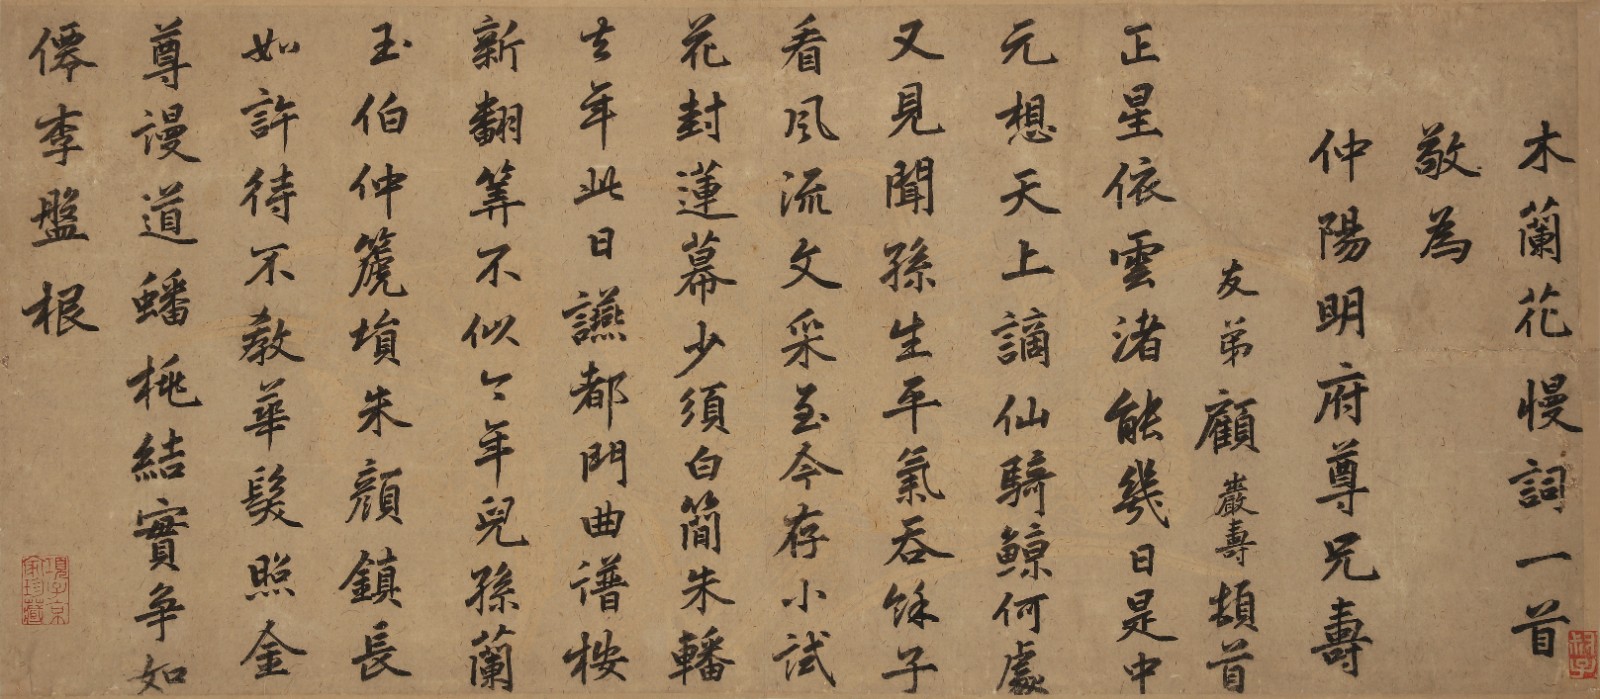 木蘭花慢詞一首
敬為
仲陽明府尊兄壽
友弟顧巖壽頓首
正星依雲渚能幾日是中
元想天上謫仙騎鯨何處
又見聞孫生平氣吞餘子
看風流文采至今存小試
花封蓮幕少須白簡朱轓
去年此日讌都門曲譜按
新翻筭不似今年兒孫蘭
玉伯仲箎塤朱顏鎮長
如許待不教華髮照金
尊謾道蟠桃結實爭如
僊李盤根
項子京家珍藏